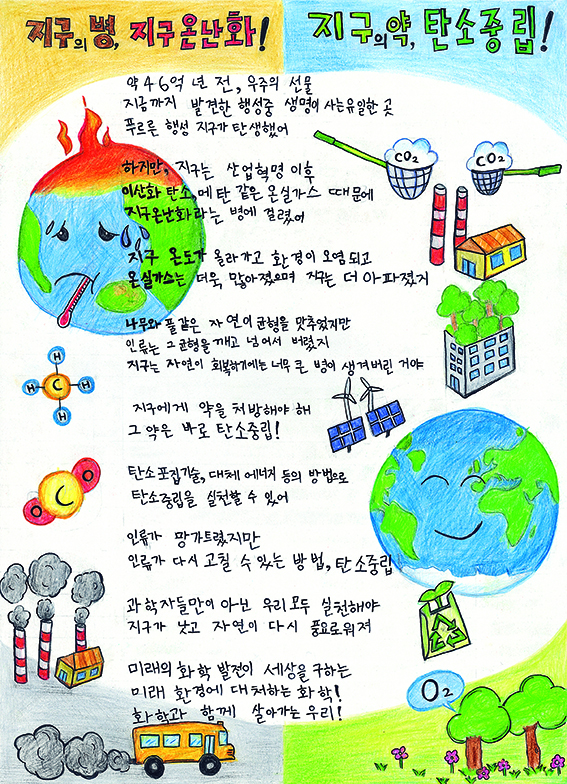 지구의 병, 지구온난화!
지구의 약, 탄소중립!
약 46억 년 전, 우주의 선물
지금까지 발견한 행성중 생명이 사는 유일한 곳
푸르른 행성 지구가 탄생했어
CO₂
CO₂
하지만, 지구는 산업혁명 이후
이산화 탄소, 메탄 같은 온실가스 때문에
지구온난화라는 병에 걸렸어
지구 온도가 올라가고 환경이 오염되고
온실가스는 더욱 많아졌으며 지구는 더 아파졌지
나무와 풀같은 자연이 균형을 맞추었지만
인류는 그 균형을 깨고 넘어서 버렸지
지구는 자연이 회복하기에는 너무 큰 병이 생겨버린 거야
H
H C H
H
지구에게 약을 처방해야 해
그 약은 바로 탄소중립!
탄소 포집기술, 대체 에너지 등의 방법으로
탄소중립을 실천할 수 있어
O C O
인류가 망가트렸지만
인류가 다시 고칠 수 있는 방법, 탄소중립
과학자들만이 아닌 우리 모두 실천해야
지구가 낫고 자연이 다시 풍요로워져
미래의 화학 발전이 세상을 구하는
미래 환경에 대처하는 화학!
화학과 함께 살아가는 우리!
O₂